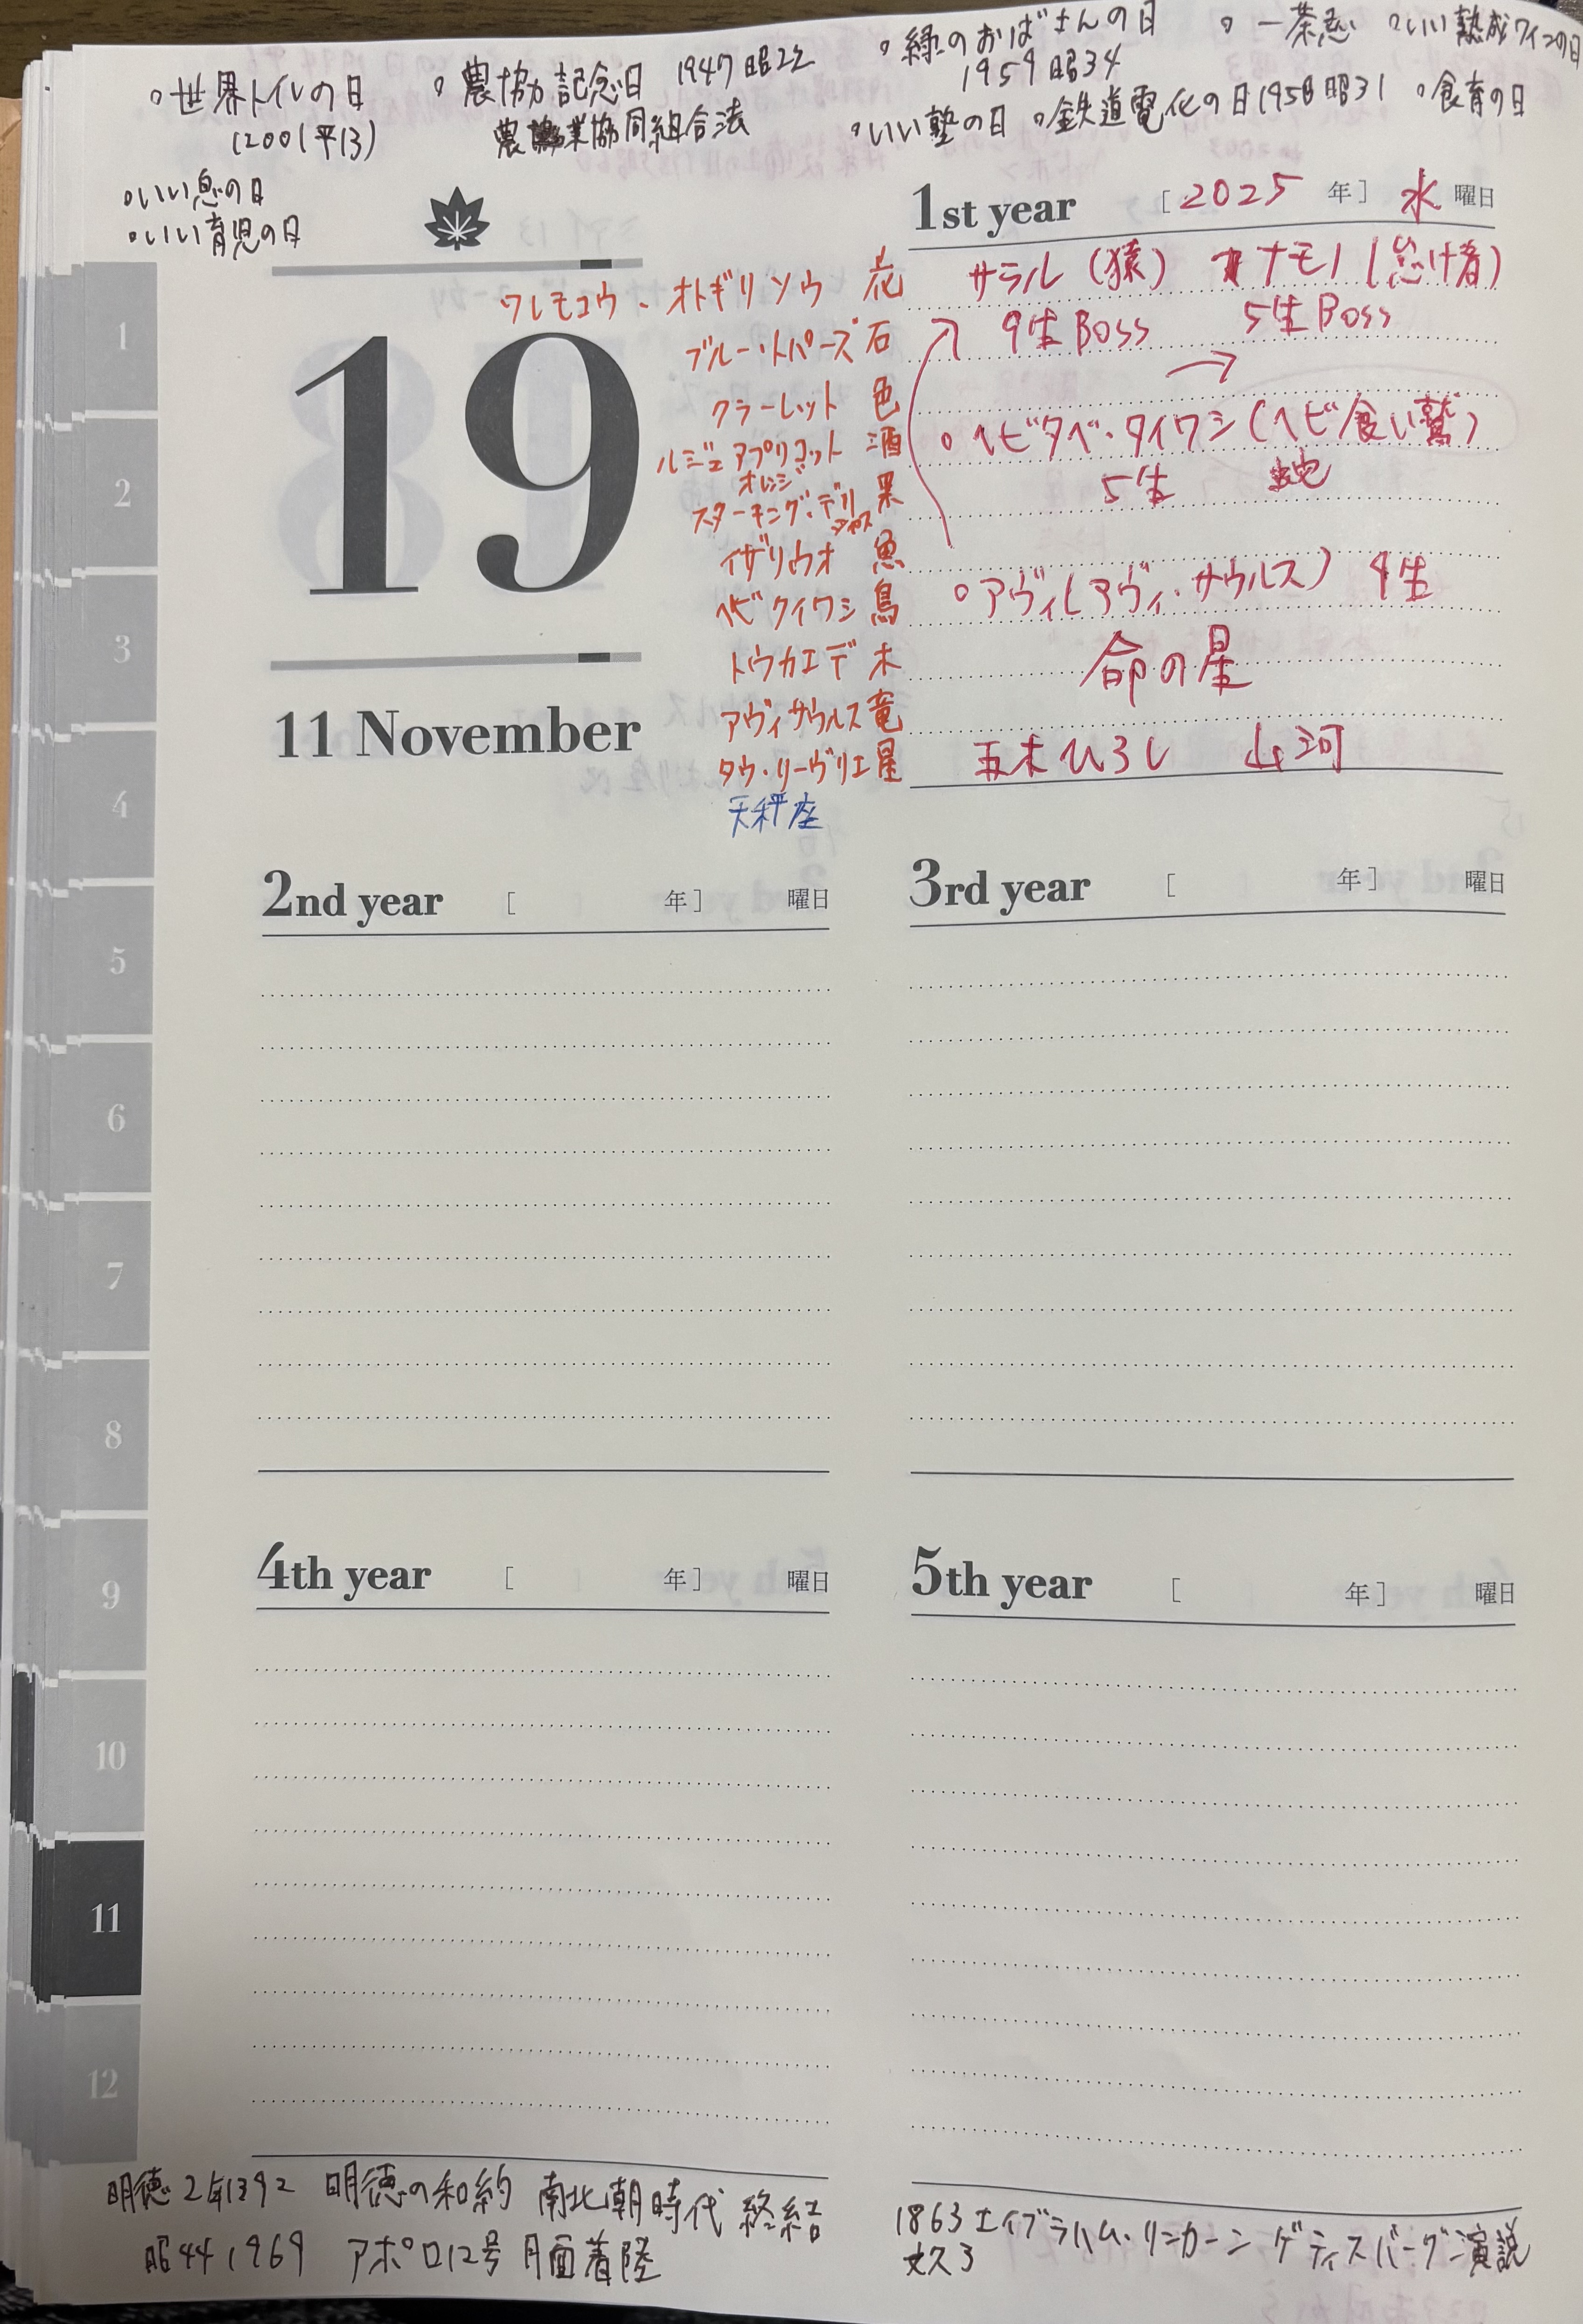 ◦緑のおばさんの日 ◦一茶忌 ◦いい熟成ワインの日
1959昭34
◦世界トイレの日 ◦農協記念日 1947昭22
(2001平13) 農業協同組合法
◦いい塾の日 ◦鉄道電化の日1956昭31 ◦食育の日
◦いい息の日
◦いい育児の日
19
11 November
ワレモコウ・オトギリソウ 花
ブルー・トパーズ 石
クラーレット 色
ルジェアプリコットオレンジ 酒
スターキング・デリシャス 果
イザリウオ 魚
ヘビクイワシ 鳥
トウカエデ 木
アヴィサウルス 竜
タウ・リーヴリエ 星
天秤座
1st year [2025年] 水曜日
サラル(猿) ナモノ(怠け者)
9生Boss 5生Boss
◦ヘビタベ・タイワシ(ヘビ食い鷲)
5生 蛇
◦アヴィ(アヴィ・サウルス) 9生
命の星
五木ひろし 山河
2nd year [ 年] 曜日
3rd year [ 年] 曜日
4th year [ 年] 曜日
5th year [ 年] 曜日
1
2
3
4
5
6
7
8
9
10
11
12
明徳2年1392 明徳の和約 南北朝時代 終結
昭44 1969 アポロ12号 月面着陸
1863 エイブラハム・リンカーン ゲティスバーグ演説
文久3